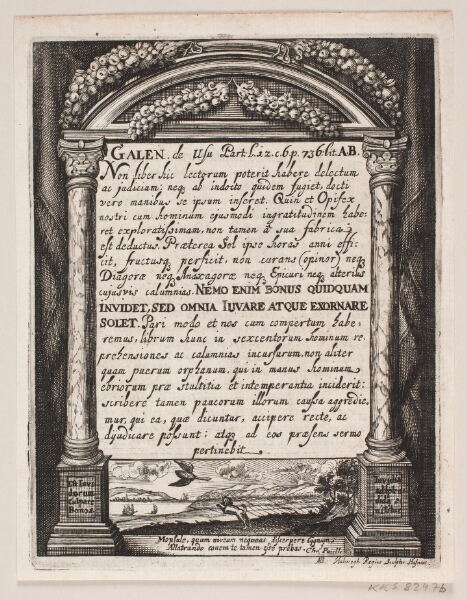 GALEN. de Usu Part. l.12. c.6. p. 736. lit. A.B.
Non liber hic lectorum poterit habere delectum
ac judicium; neq, ab indocto quidem fugiet, docti
vero manibus se ipsum inferet. Quin et Opifex
noster cum hominum ejusmodi ingratitudinem habe-
ret exploratissimam, non tamen a sua fabrica
est deductus. Præterea Sol ipse horas anni effi-
cit, fructusq, perficit, non curans (opinor) neq,
Diagoræ neq, Anaxagoræ neq, Epicuri neq, alterius
cujusvis calumnias. NEMO ENIM BONUS QUIDQUAM
INVIDET, SED OMNIA IUVARE ATQUE EXORNARE
SOLET. Pari modo et nos cum compertum habe-
remus, librum hunc in sexcentorum hominum re-
prehensiones ac calumnias incursurum, non aliter
quam puerum orphanum, qui in manus hominum
ebriorum præ stultitia et intemperantia inciderit:
scribere tamen paucorum illorum caussa aggredie-
mur, qui ea, quæ dicuntur, accipere recte, ac
dijudicare possunt: atq, ad eos præsens sermo
pertinebit.
Mopsule, quam motum nequeas discerpere
Allatrando canem te tamen esse probas.
KKS 8247b